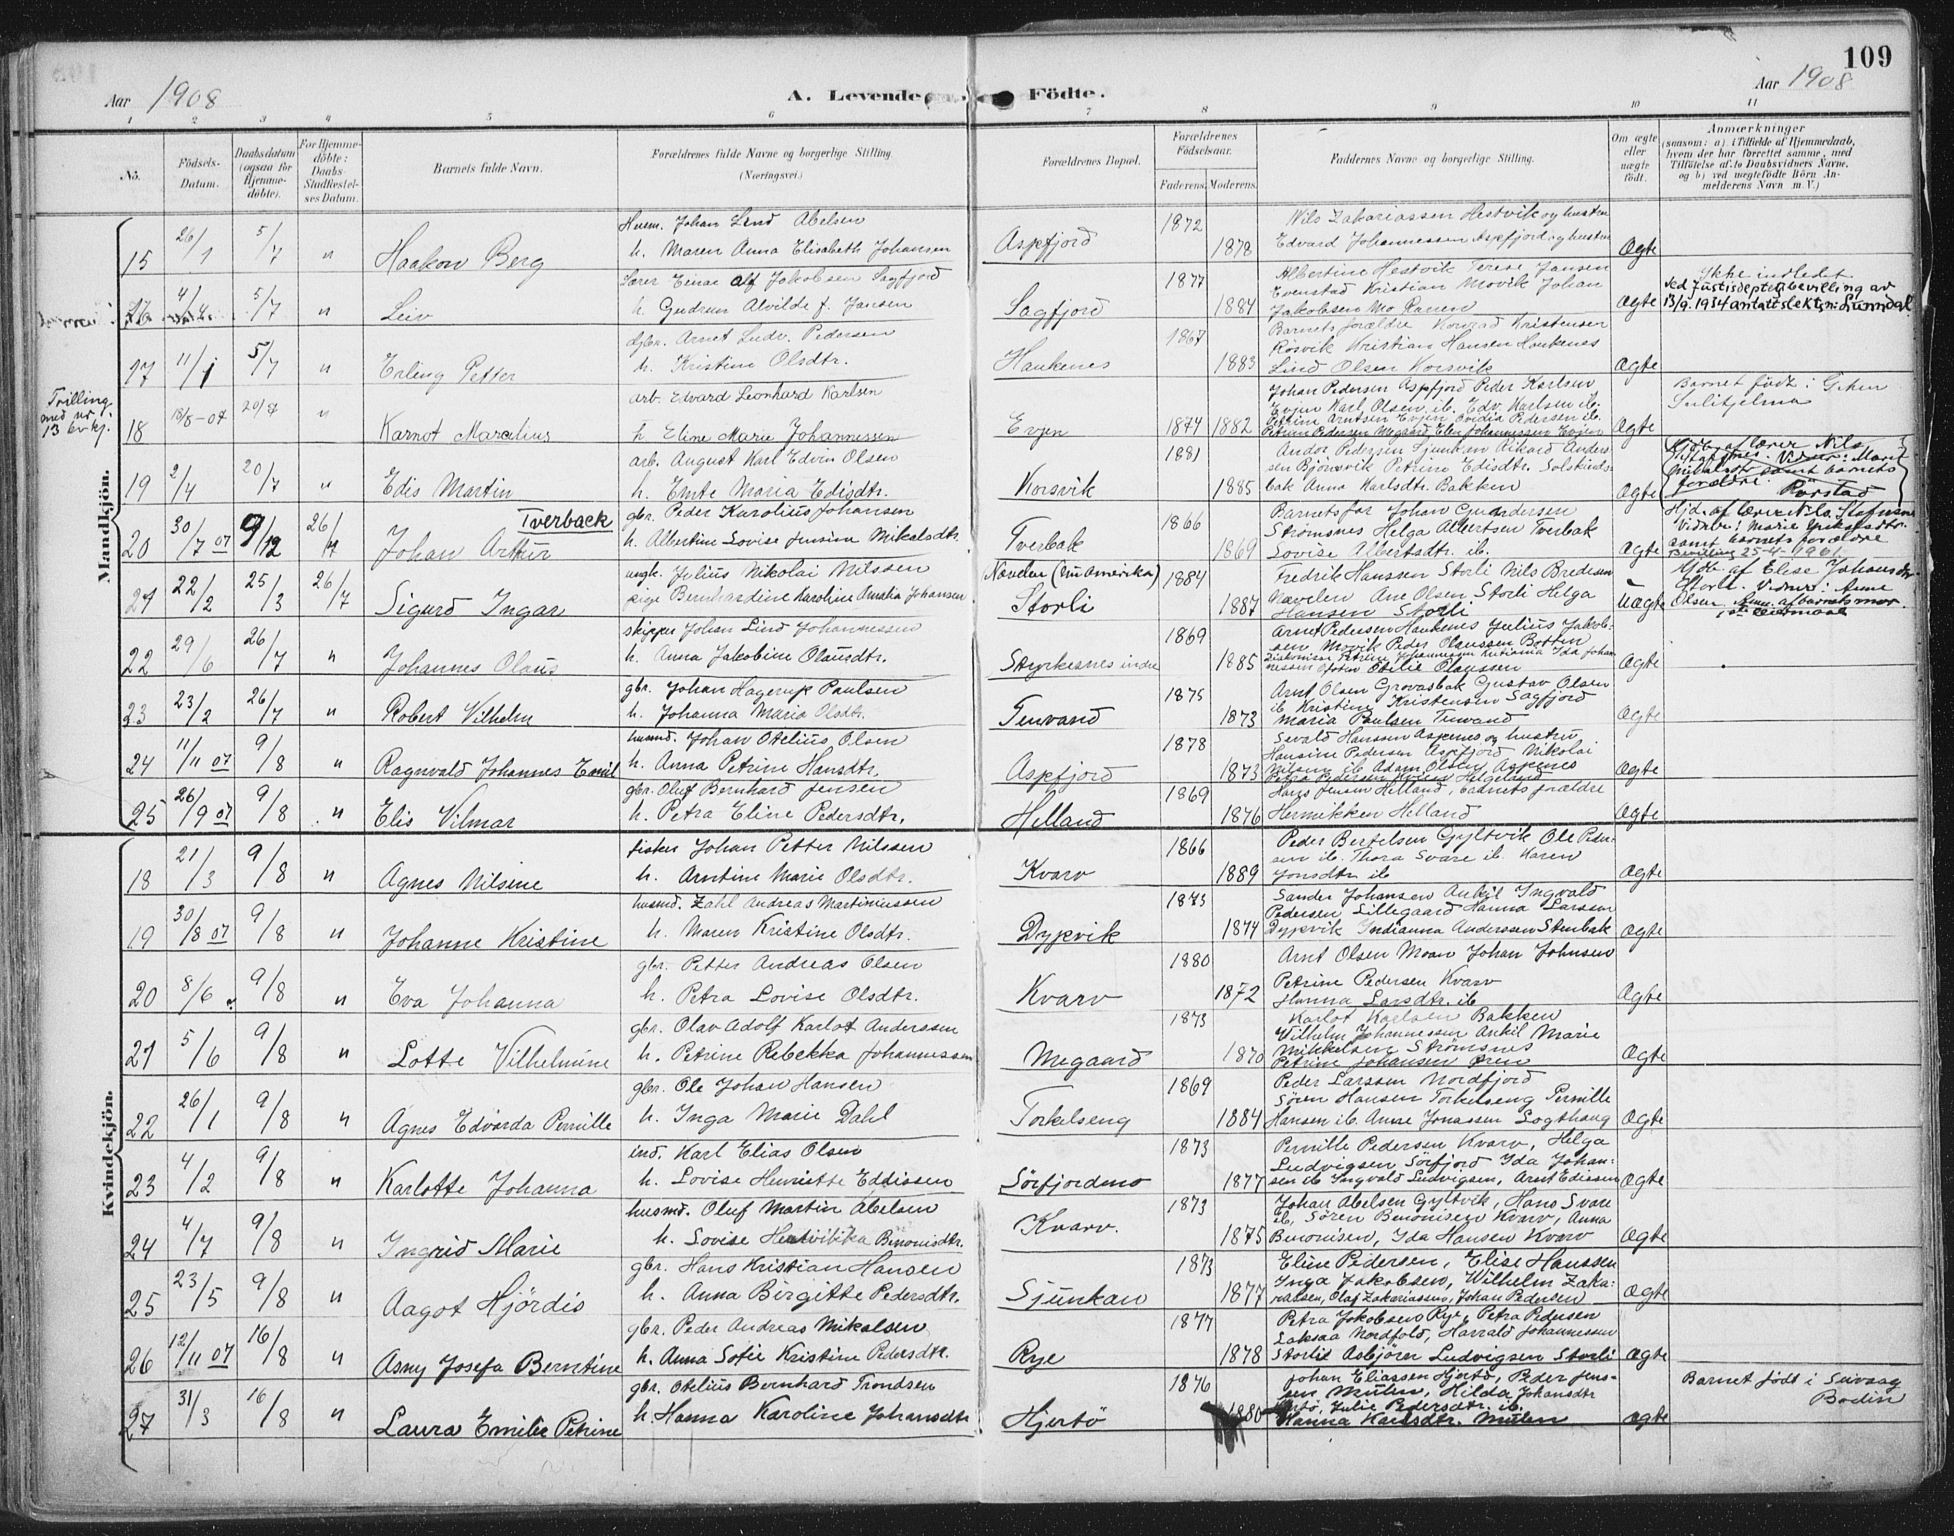 109
Aar 1908
A. Levende Födte.
Aar 1908
1 2 3 4 5 6 7 8 9 10 11
No.
Födsels-Datum.
Daabsdatum (ogsaa för Hjemme-döbte).
For Hjemme-döbte: Daabs-Stadfæstel-ses Datum.
Barnets fulde Navn.
Forældrenes fulde Navne og borgerlige Stilling.
(Næringsvei.)
Forældrenes Bopæl.
Forældrenes Födselsaar.
Faderens. Moderens.
Faddernes Navne og borgerlige Stilling.
Om ægte eller uægte födt.
Anmærkninger
(saasom: a) i Tilfælde af Hjemmedaab, hvem der har forrettet samme, med Tilföielse af to Daabsvidners Navne, og b) ved uægtefödte Börn An-melderens Navn m. V.)
Mandkjön.
15 26/1 5/7 " Haakon Berg
Husm. Johan Lind Abelsen
h. Maren Anna Elisabeth Johansen
Aspfjord 1872 1878
Nils Zakariassen Hestvik og hustru
Edvard Johannessen Aspfjord og hustru
Ægte
16 4/4 5/7 " Leiv
Lærer Einar Alf Jakobsen Sagfjord
h. Gudrun Alvilde f. Jansen
Sagfjord 1877 1884
Albertine Hestvik Terese Jansen
Evenstad Kristian Movik Johan
Jakobsen Mo Ranen
Ægte
Ikke indledet
Ved Justisdeptets bevilling av
13/9. 1934 antatt slektsn: Lunndal.
17 11/1 5/7 " Erling Petter
gbr. Arnet Ludv. Pedersen
h. Kristine Olsdtr.
Haukenes 1867 1883
Barnets forældre Konrad Kristensen
Røsvik Kristian Hansen Haukenes
Lind Olsen Korsvik
Ægte
Trilling
med nr.
13 kvkj.
18 18/8-07 20/7 " Karnot Marcelius
arb. Edvard Leonhard Karlsen
h. Eline Marie Johannessen
Evjen 1874 1882
Johan Pedersen Aspfjord Peder Karlsen
Evjen Karl Olsen ib. Edv. Karlsen ib.
Petrine Arntsen Evjen Ovidia Pedersen ib.
Petrine Pedersen Megaard Elen Johannessen Evjen
Ægte
Barnet födt i
Sulitjelma
19 2/4 20/7 " Edis Martin
arb. August Karl Edvin Olsen
h. Emte Maria Edisdtr.
Korsvik 1881 1885
Andor Pedersen Sjunkan Rikard Anders-
sen Bjørnsvik Petrine Edisdtr. Solstrids-
bak Anna Karlsdtr. Bakken
Ægte
Hjdb. af lærer Nils
Vidner: Marie
samt barnets
forældre. Rörstad
20 30/7 07 9/12 26/7 Johan Artur Tverback
gbr. Peder Karolius Johansen
h. Albertine Lovise Jensine Mikalsdtr.
Tverbak 1866 1869
Barnets far Johan Gundersen
Strømsnes Helga Albertsen Tverbak
Lovise Albertsdtr. ib.
Ægte
Hjd. af lærer Nils
Vidner: Marie Eriksdtr.
samt barnets forældre
Bevilling 25-4-1961.
21 22/2 25/3 26/7 Sigurd Ingar
ungk. Julius Nikolai Nilssen
pige Bernhardine Karoline Amalia Johansen
Nævelen (nu Amerika)
Storli 1884 1887
Fredrik Hanssen Storli Nils Bredesen
Nævelen Ane Olsen Storli Helga
Hansen Storli
Uægte
Hjdb. af Elise Johansdtr
Storli. Vidner: Anne
Olsen. Anm. af barnets mor.
22 29/6 26/7 " Johannes Olaus
skipper Johan Lind Johannessen
h. Anna Jakobine Olausdtr.
Styrkesnes indre 1869 1885
Arnet Pedersen Haukenes Julius Jakob-
sen Movik Peder Olaussen Botten
Otilie Olaussen
Ægte
23 23/2 26/7 " Robert Vilhelm
gbr. Johan Hagerup Paulsen
h. Johanna Maria Olsdtr.
Tenvand 1875 1873
Arnt Olsen Grovasbak Gustav Olsen
ib Kristine Kristensen Sagfjord
Maria Paulsen Tenvand
Ægte
24 11/11 07 9/8 " Ragnvald Johannes Emil
husmd. Johan Otelius Olsen
h. Anna Petrine Hansdtr.
Aspfjord 1878 1873
Sevald Hanssen Aspenes og hustru
Hansine Pedersen Aspfjord Nikolai
Nilsen ib Adam Olsen Aspenes
Petra Pedersen Kvien Helgeland
Ægte
25 26/9 07 9/8 " Elis Vilmar
gbr. Oluf Bernhard Jensen
h. Petra Eline Pedersdtr.
Helland 1869 1876
Hans Jensen Helland, barnets forældre
Henrikken Helland
Ægte
Kvindekjön.
18 21/3 9/8 " Agnes Nilsine
fisker Johan Petter Nilssen
h. Arntine Marie Olsdtr.
Kvarv 1866 1889
Peder Bertelsen Gyltvik Ole Peder-
sen ib. Thora Svare ib. Karen
Jonsdtr ib
Ægte
19 30/8 07 9/8 " Johanne Kristine
husmd. Zahl Andreas Martinussen
h. Maren Kristine Olsdtr.
Dypvik 1873 1874
Sander Johansen Ankil Ingvald
Pedersen Lillegaard Hanna Larssen
Dypvik Indianna Anderssen Stenbak
Ægte
20 8/6 9/8 " Eva Johanna
gbr. Petter Andreas Olsen
h. Petra Lovise Olsdtr.
Kvarv 1880 1872
Arnt Olsen Moan Johan Johnsen
Petrine Pedersen Kvarv
Hanna Larsdtr. ib
Ægte
21 5/6 9/8 " Lotte Vilhelmine
gbr. Olav Adolf Karlot Anderssen
h. Petrine Rebekka Johannessen
Megaard 1873 1870
Karlot Karlsen Bakken
Vilhelm Johannessen Ankil Marie
Mikkelsen Strømsnes
Petrine Johansen Øren
Ægte
22 26/1 9/8 " Agnes Edvarda Pernille
gbr. Ole Johan Hansen
h. Inga Marie Dahl
Torkelseng 1869 1884
Peder Larssen Nordfjord
Søren Hansen Torkelseng Pernille
Hansen ib. Anne Jonassen Sogthaug
Ægte
23 4/2 9/8 " Karlotte Johanna
ind. Karl Elias Olsen
h. Lovise Henriette Eddissen
Sörfjordmo 1873 1877
Pernille Pedersen Kvarv, Helga
Ludvigsen Sörfjord Ida Johan-
sen ib Ingvald Ludvigsen, Arnt Edissen
Ægte
24 4/7 9/8 " Ingrid Marie
husmd. Oluf Martin Abelsen
h. Lovise Hendrikka Benonisdtr.
Kvarv. 1873 1875
Johan Abelsen Gyltvik, Hans Svare
ib, Sören Benonisen Kvarv, Anna
Benonisen, Ida Hansen Kvarv
Ægte
25 23/5 9/8 " Aagot Hjördis
gbr. Hans Kristian Hansen
h. Anna Birgitte Pedersdtr.
Sjunkan 1873 1877
Eline Pedersen, Elise Hanssen
Inga Jakobsen, Wilhelm Zaka-
riassen, Olaf Zakariassen, Johan Pedersen
Ægte
26 12/11 07 16/8 " Asny Josefa Berntine
gbr. Peder Andreas Mikalsen
h. Anna Sofie Kristine Pedersdtr.
Rye 1877 1878
Petra Jakobsen Rye, Petra Pedersen
Laksaa Nordfold, Harald Johannessen
Storli Asbjörn Ludvigsen Storli
Ægte
27 31/3 16/8 " Laura Emilie Petrine
gbr. Otelius Bernhard Trondsen
h. Hanna Karoline Johansdtr
Hjertö 1876 1880
Johan Eliassen Hjertö, Peder Jens-
sen Mulen, Hilda Johansdtr
Hjertö, Julie Pedersdtr. ib.
Hanna Karlsdtr. Mulen
Ægte
Barnet födt i Seivaag
Bodin